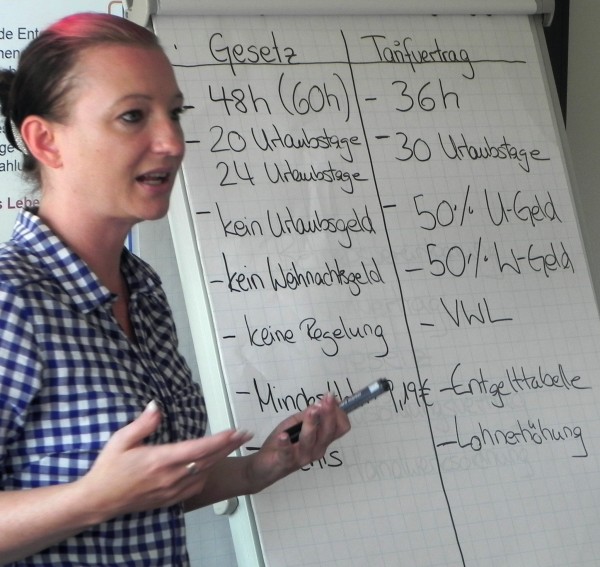 Gesetz
Tarifvertrag
- 48h (60h)
- 36h
- 20 Urlaubstage
24 Urlaubstage
- 30 Urlaubstage
- kein Urlaubsgeld
- 50% U-Geld
- kein Weihnachtsgeld
- 50% W-Geld
- keine Regelung
- VWL
9,19€
- Entgelttabelle
- Lohnerhöhung